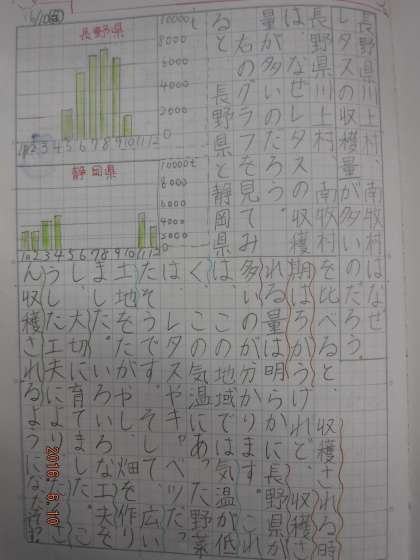 長野県川上村、南牧村はなぜ
レタスの収穫量が多いのだろう。
長野県川上村、南牧村
は、なぜレタスの収穫
量が多いのだろう。
のグラフを見てみ
ると、長野県と静岡県
を比べると、収穫される時
期はちがうけれど、収穫さ
れる量は明らかに長野県が
多いのが分かります。これ
は、この地域では気温が低
く、この気温にあった野菜
は、レタスやキャベツだっ
たそうです。そして、広い
土地をたがやし、畑を作り
ました。いろいろな工夫を
し、大切に育てました。こ
うした工夫によって
ん収穫されるようになった
6/10(金)
長野県
10000t
8000
6000
4000
2000
0
1月 2 3 4 5 6 7 8 9 10 11 12
静岡県
10000t
8000
6000
4000
2000
0
1月 2 3 4 5 6 7 8 9 10 11 12
2016. 6. 10